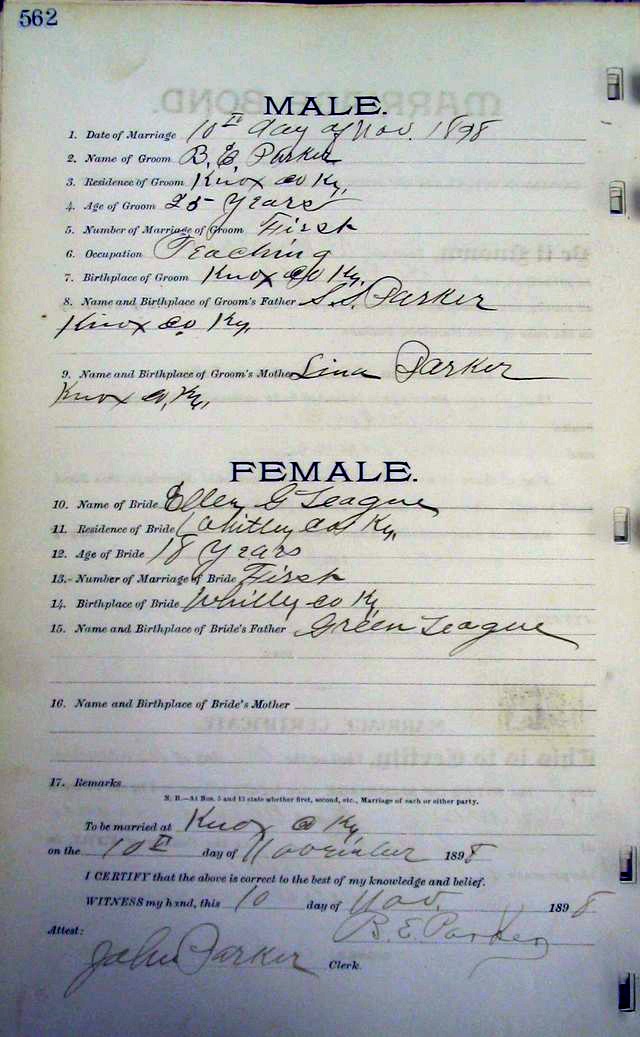 562
MALE.
1. Date of Marriage 10th day of Nov. 1898
2. Name of Groom B. E Parker
3. Residence of Groom Knox Co Ky.
4. Age of Groom 25 Years
5. Number of Marriage of Groom First
6. Occupation Teaching
7. Birthplace of Groom Knox Co Ky.
8. Name and Birthplace of Groom's Father S.S. Parker
Knox Co Ky.
9. Name and Birthplace of Groom's Mother Lina Parker
Knox Co, Ky.
FEMALE.
10. Name of Bride Ellen G League
11. Residence of Bride Whitley Co Ky.
12. Age of Bride 18 Years
13.- Number of Marriage of Bride First
14. Birthplace of Bride Whitly Co Ky
15. Name and Birthplace of Bride's Father Green League
16. Name and Birthplace of Bride's Mother
17. Remarks
N. B.—At Nos. 5 and 13 state whether first, second, etc., Marriage of each or either party.
To be married at Knox Co Ky,
on the 10th day of November 1898
I CERTIFY that the above is correct to the best of my knowledge and belief.
WITNESS my hand, this 10 day of Nov. 1898
Attest: B. E. Parker
John Parker Clerk.